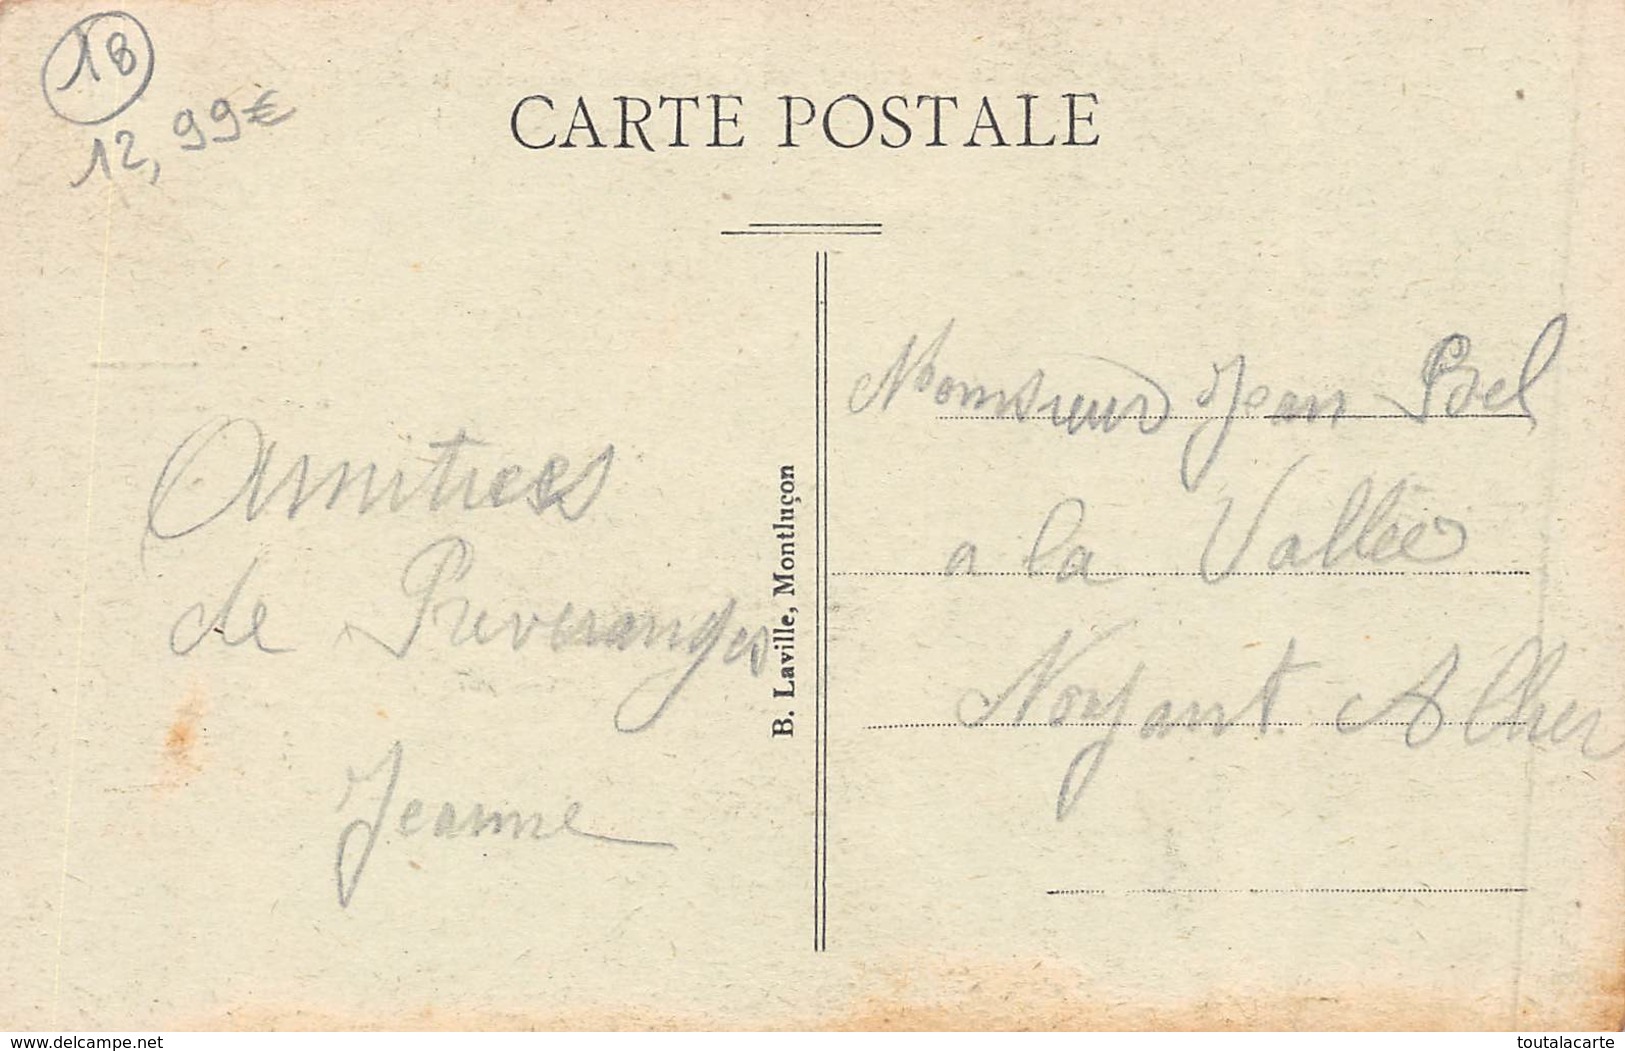 18
12,99€
CARTE POSTALE
Amitiees
de Preveranges
Jeanne
B. Laville, Montluçon
Monsieur Jean Bel
a la Vallée
Noyant Allier
www.delcampe.net
toutalacarte